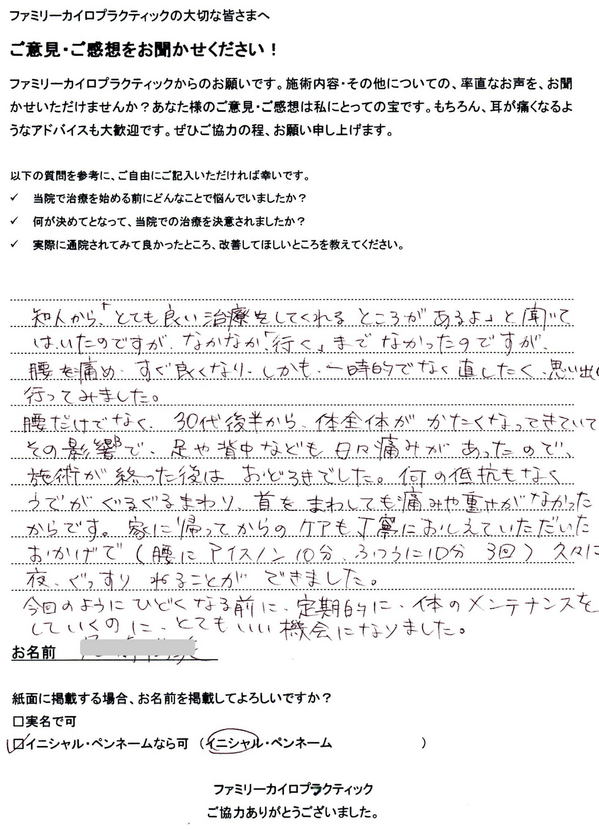 ファミリーカイロプラクティックの大切な皆さまへ
ご意見・ご感想をお聞かせください！
ファミリーカイロプラクティックからのお願いです。施術内容・その他についての、率直なお声を、お聞
かせいただけませんか？あなた様のご意見・ご感想は私にとっての宝です。もちろん、耳が痛くなるよ
うなアドバイスも大歓迎です。ぜひご協力の程、お願い申し上げます。
以下の質問を参考に、ご自由にご記入いただければ幸いです。
✓ 当院で治療を始める前にどんなことで悩んでいましたか？
✓ 何が決めてとなって、当院での治療を決意されましたか？
✓ 実際に通院されてみて良かったところ、改善してほしいところを教えてください。
知人から、「とても良い治療をしてくれるところがあるよ」と聞いて
はいたのですが、なかなか「行く」までなかったのですが、
腰を痛め、すぐ良くなり、しかも、一時的でなく直したく、思い出し
行ってみました。
腰だけでなく、30代後半から、体全体がかたくなってきていて
その影響で、足や背中なども日々痛みがあったので、
施術が終った後はおどろきでした。何の抵抗もなく
うでがぐるぐるまわり、首をまわしても痛みや重さがなかった
からです。家に帰ってからのケアも丁寧におしえていただいた
おかげで（腰にアイスノン10分、ふつうに10分 3回）久々に
夜、ぐっすりねることができました。
今回のようにひどくなる前に、定期的に、体のメンテナンスを
していくのに、とてもいい機会になりました。
お名前
紙面に掲載する場合、お名前を掲載してよろしいですか？
□実名で可
☑イニシャル・ペンネームなら可 （イニシャル・ペンネーム ）
ファミリーカイロプラクティック
ご協力ありがとうございました。